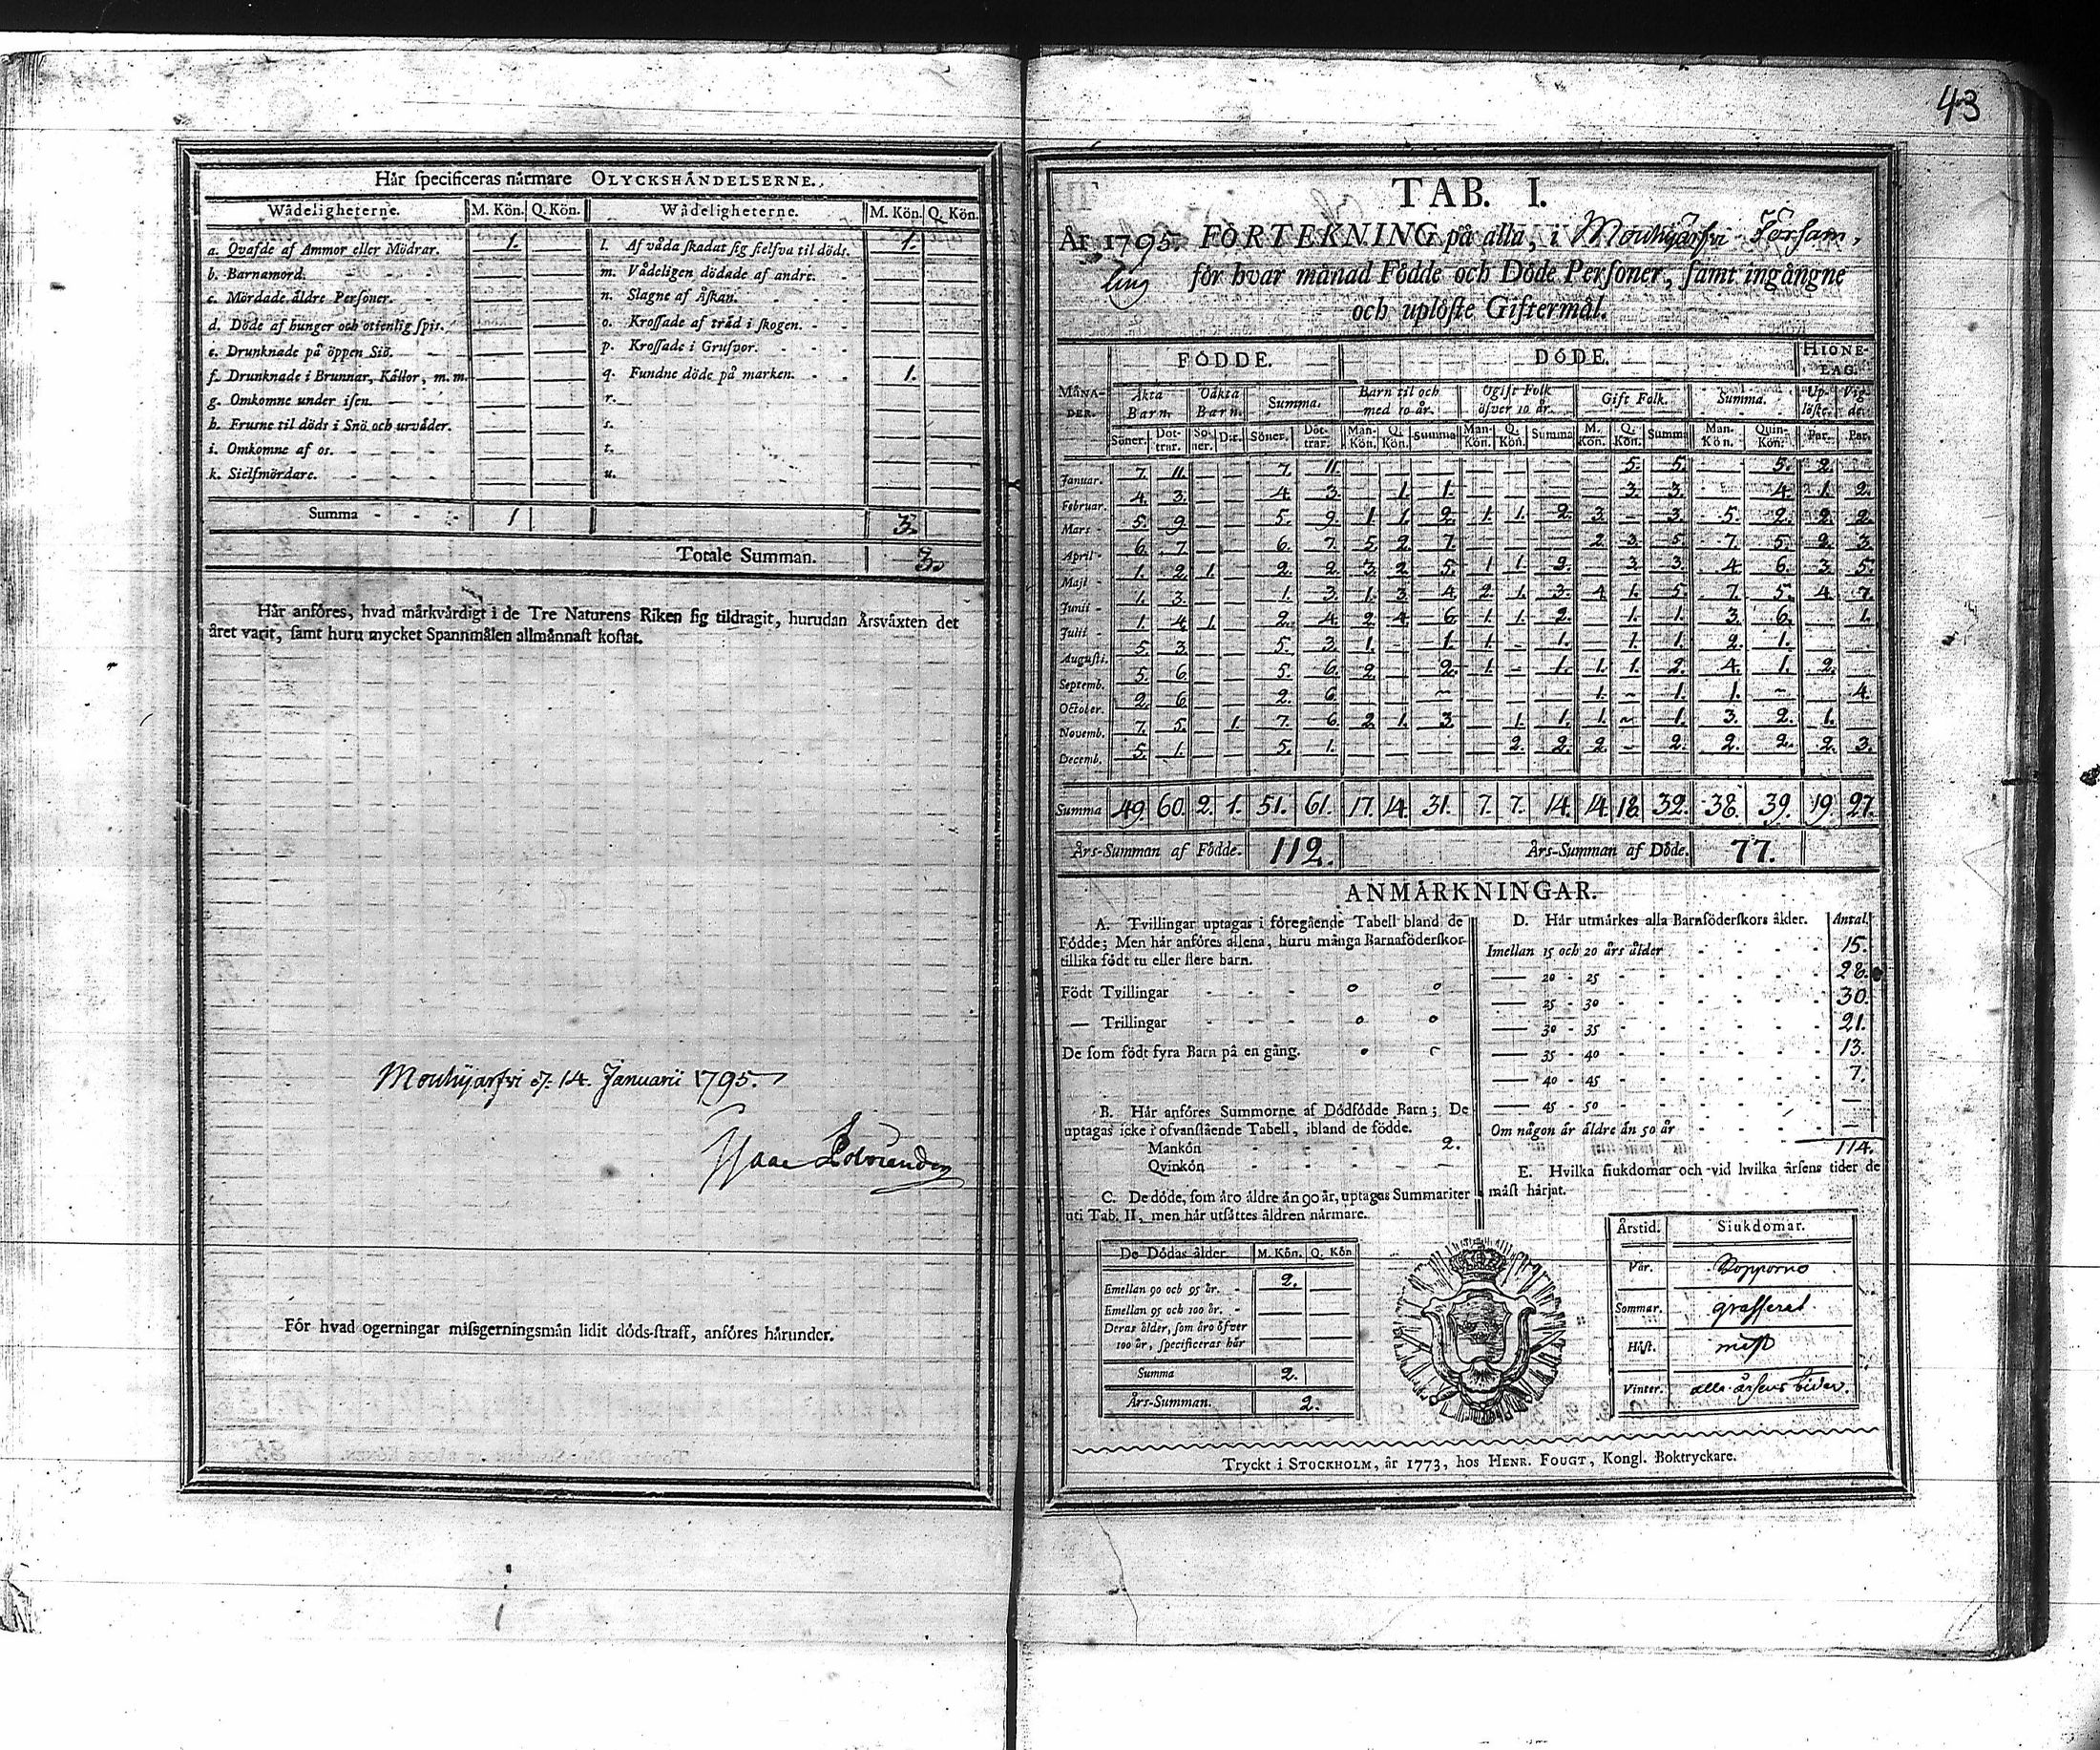 43
Här specificeras närmare OLYCKSHÄNDELSERNE.
Wådeligheterne. M. Kön. Q. Kön. Wådeligheterne. M. Kön. Q. Kön.
a. Qvafde af Ammor eller Mödrar. 1. l. Af våda skadat sig sielfva til döds. 1.
b. Barnamord. m. Vådeligen dödade af andre.
c. Mördade äldre Personer. n. Slagne af Åskan.
d. Döde af hunger och otienlig spis. o. Krossade af träd i skogen.
e. Drunknade på öppen Siö. p. Krossade i Grufvor.
f. Drunknade i Brunnar, Källor, m. m. q. Fundne döde på marken. 1.
g. Omkomne under isen. r.
h. Frusne til döds i Snö och urväder. s.
i. Omkomne af os. t.
k. Sielfmördare. u.
Summa 1 3.
Totale Summan. 3.
Här anföres, hvad märkvärdigt i de Tre Naturens Riken sig tildragit, hurudan Årsväxten det
året varit, samt huru mycket Spannmålen allmännast kostat.
Mouhijärfvi d. 14. Januarii 1795.
Isaac
För hvad ogerningar missgerningsmän lidit döds-straff, anföres härunder.
TAB. I.
År 1795. FÖRTEKNING på alla, i Mouhijärfvi Församling
för hvar månad Födde och Döde Personer, samt ingångne
och uplöste Giftermål.
MÅNADER. FÖDDE. DÖDE. HIONELAG.
Äkta Barn. Oäkta Barn. Summa. Barn til och med 10 år. Ogift Folk öfver 10 år. Gift Folk. Summa. Uplöste. Vigde.
Söner. Döttrar. Söner. Dtr. Söner. Döttrar. Man-Kön. Q. Kön. Summa Man-Kön. Q. Kön. Summa M. Kön. Q. Kön. Summa Man-Kön. Quin-Kön. Par. Par.
Januar. 7. 11. — — 7. 11. — — — — — — — 5. 5. — 5. 2. —
Februar. 4. 3. — — 4. 3. — 1. 1. — — — — 3. 3. — 4. 1. 2.
Mars 5. 9. — — 5. 9. 1. 1. 2. 1. 1. 2. 3. - 3. 5. 2. 2. 2.
April 6. 7. — — 6. 7. 5. 2. 7. — — — 2. 3. 5. 7. 5. 2. 3.
Maji 1. 2. 1. — 2. 2. 3. 2. 5. 1. 1. 2. — 3. 3. 4. 6. 3. 5.
Junii 1. 3. — — 1. 3. 1. 3. 4. 2. 1. 3. 4. 1. 5. 7. 5. 4. 7.
Julii 1. 4. 1. — 2. 4. 2. 4. 6. 1. 1. 2. — 1. 1. 3. 6. — 1.
Augusti. 5. 3. — — 5. 3. 1. - 1. 1. - 1. — 1. 1. 2. 1. — —
Septemb. 5. 6. — — 5. 6. 2. — 2. 1. - 1. 1. 1. 2. 4. 1. 2. —
October. 2. 6. — — 2. 6. — — — — — — 1. - 1. 1. — — 4.
Novemb. 7. 5. — 1. 7. 6. 2. 1. 3. — 1. 1. 1. - 1. 3. 2. 1. —
Decemb. 5. 1. — — 5. 1. — — — — 2. 2. 2. - 2. 2. 2. 2. 3.
Summa 49. 60. 2. 1. 51. 61. 17. 14. 31. 7. 7. 14. 14. 18. 32. 38. 39. 19. 27.
Års-Summan af Födde. 112. Års-Summan af Döde. 77.
ANMÄRKNINGAR.
A. Tvillingar uptagas i föregående Tabell bland de
Födde; Men här anföres allena, huru många Barnaföderskor
tillika födt tu eller flere barn.
Födt Tvillingar 0 0
— Trillingar 0 0
De som födt fyra Barn på en gång.
B. Här anföres Summorne af Dödfödde Barn; De
uptagas icke i ofvanstående Tabell, ibland de födde.
Mankön 2.
Qvinkön —
C. De döde, som äro äldre än 90 år, uptagas Summariter
uti Tab. II, men här utsättes åldren närmare.
De Dödas ålder. M. Kön. Q. Kön
Emellan 90 och 95 år. 2. —
Emellan 95 och 100 år. — —
Deras ålder, som äro öfver
100 år, specificeras här — —
Summa 2.
Års-Summan. 2.
D. Här utmärkes alla Barnföderskors ålder. Antal.
Imellan 15 och 20 års ålder 15.
— 20 - 25 28.
— 25 - 30 30.
— 30 - 35 21.
— 35 - 40 13.
— 40 - 45 7.
— 45 - 50 —
Om någon är äldre än 50 år —
114.
E. Hvilka siukdomar och vid hvilka årsens tider de
mäst härjat.
Årstid. Siukdomar.
Vår. Kopporne
Sommar. grasserat
Höst. mest
Vinter. alla årsens tider.
Tryckt i STOCKHOLM, år 1773, hos HENR. FOUGT, Kongl. Boktryckare.